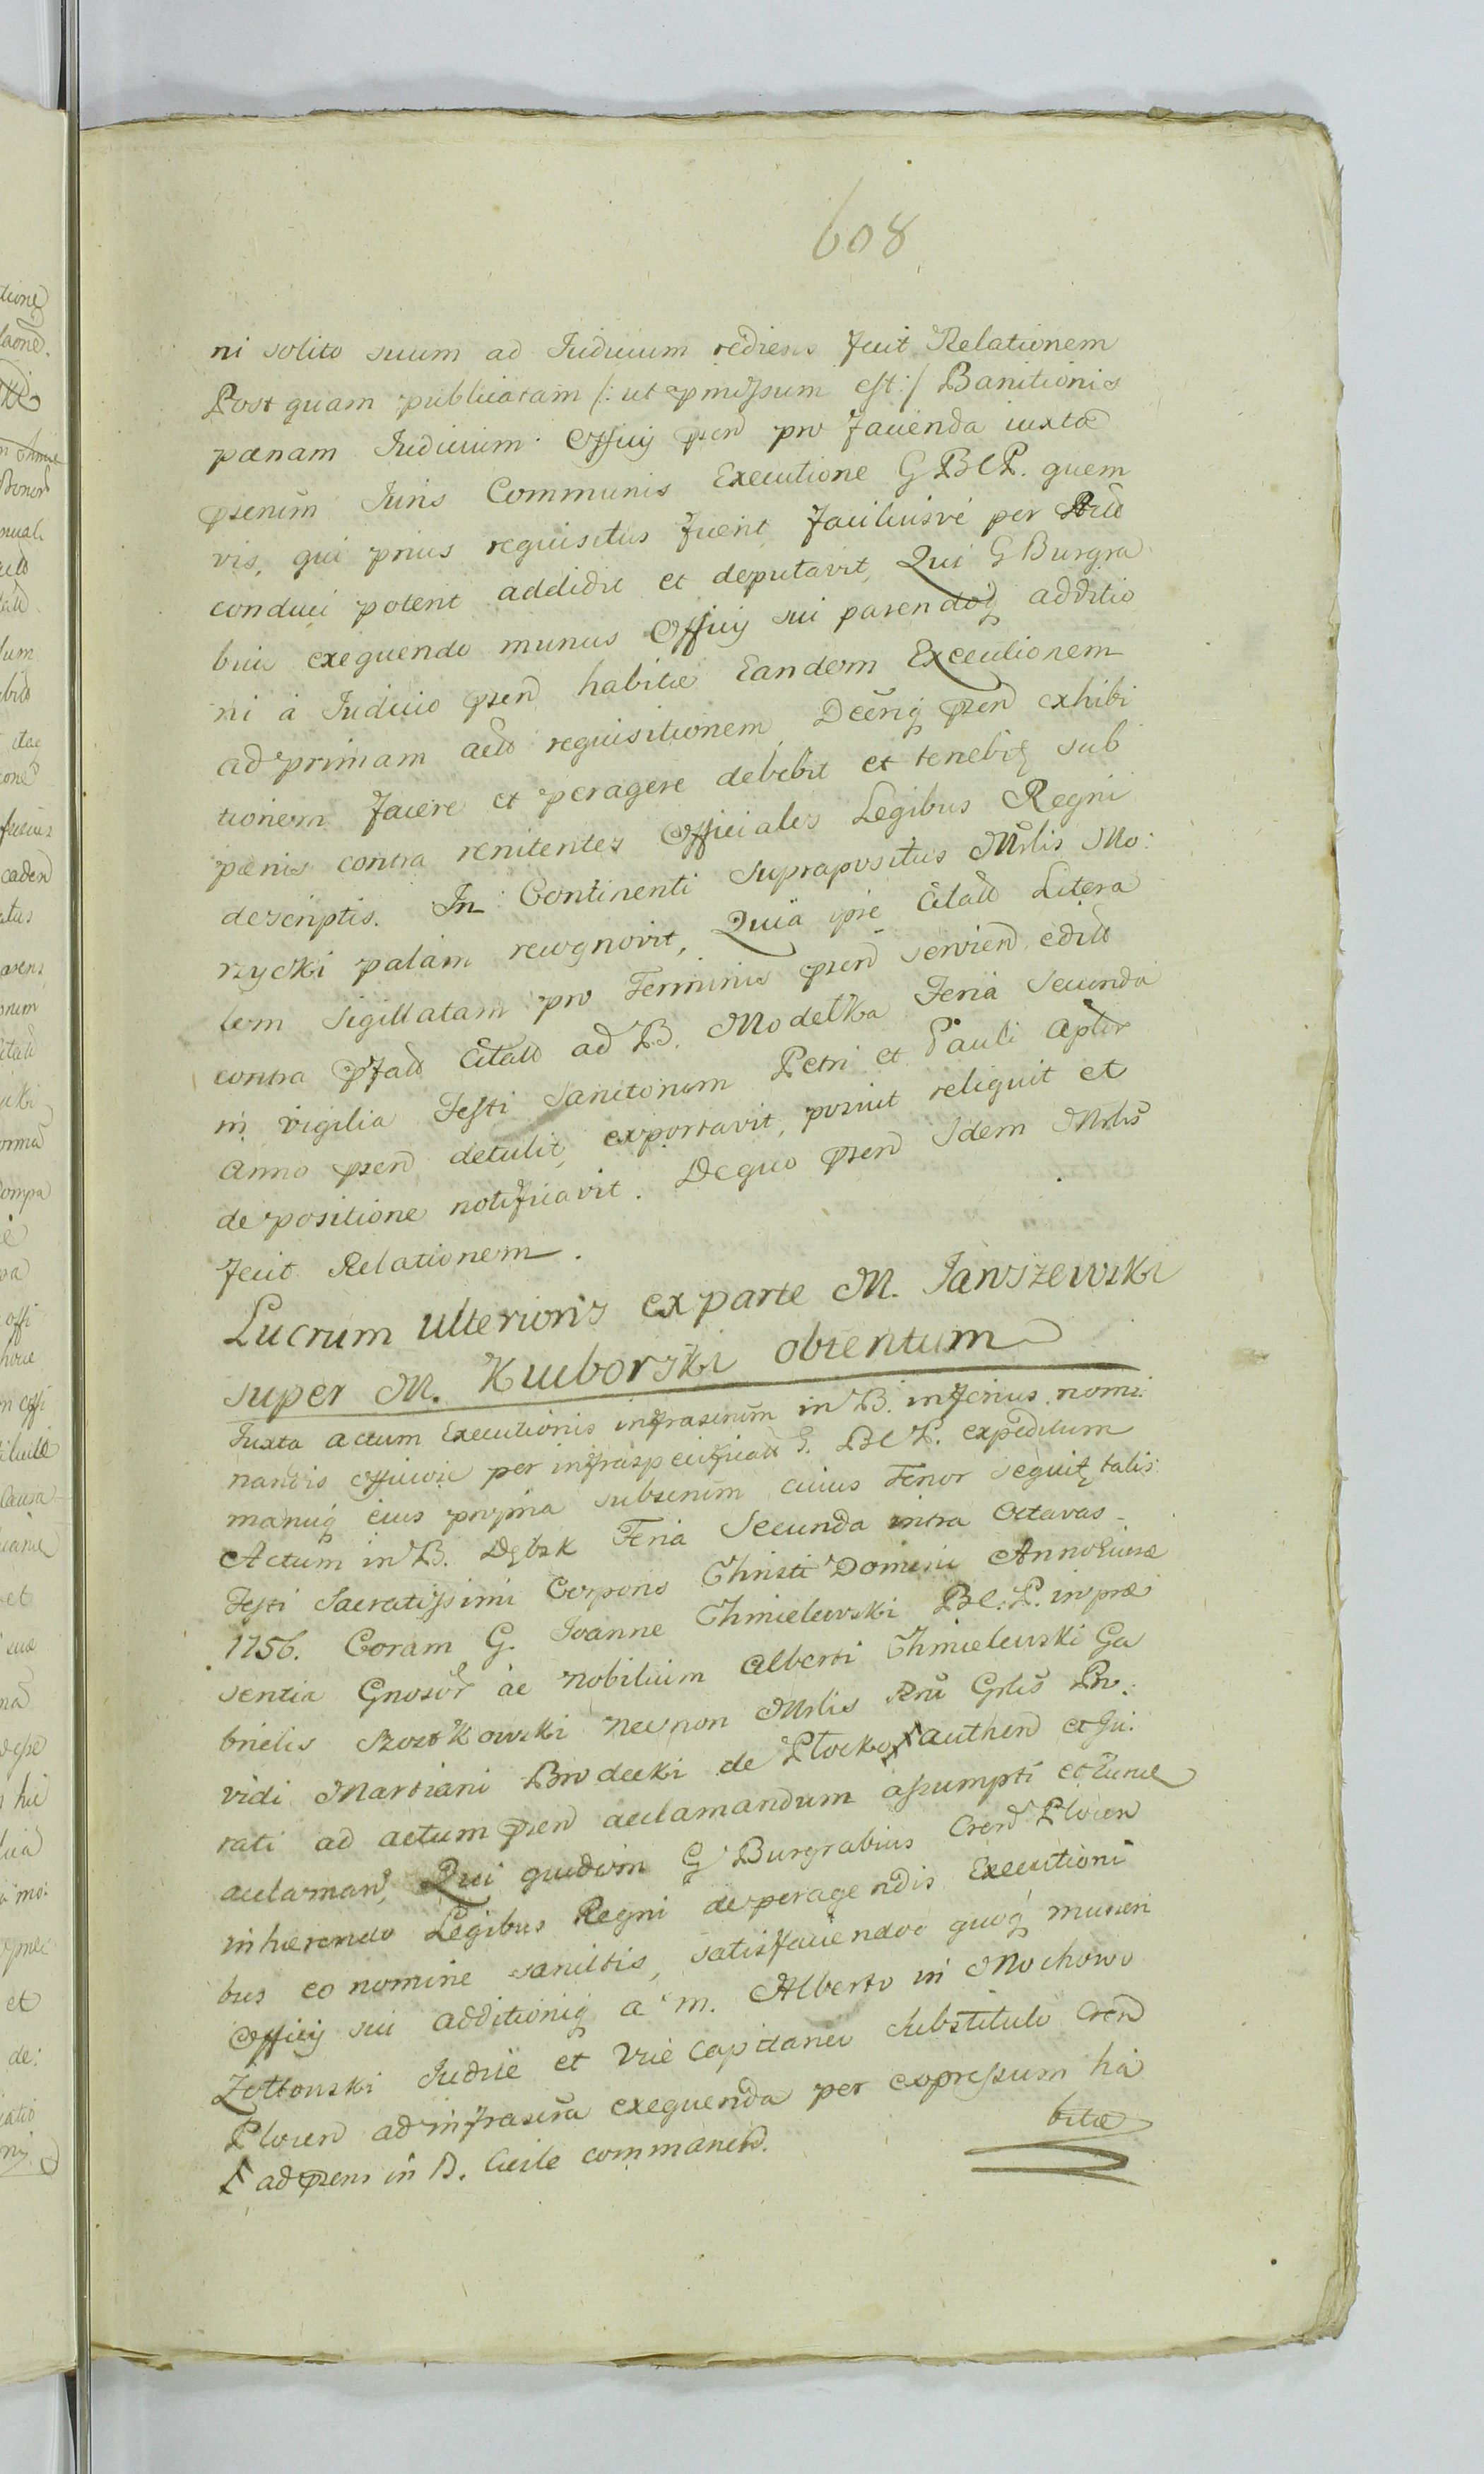 608
ni solito suum ad Iudicium rediens fecit Relationem
Post quam publicatam /: ut pmissum est :/ Banitionis
pœnam Iudicium Officij psen pro facienda iuxta
psenim Iuris Communis Executione G BCP. quem
vis, qui prius requisitus fuerit, faciliusve per
conduci poterit addidit et deputavit, Qui G Burgra
biu exequendo munus Officij sui parendoq additio
ni a Iudicio psen habitæ Eandem Executionem
ad primam requisitionem psen exhibi
tionem facere et peragere debebit et tenebit sub
pœnis contra renitentes Officiales Legibus Regni
descriptis. In Continenti suprapositus Mrlis Mo:
rzycki palam recognovit, Quia ipse Litera
lem Sigillatam pro Terminis psen servien
contra ad B. Modełka Feria Secunda
in vigilia Festi Sanctorum Petri et Pauli Aplor
Anno psen detulit, exportavit, posuit reliquit et
de positione notificavit. Dequo psen Idem Mrlis
fecit Relationem.
Lucrum ulterioris ex parte M. Janiszewski
super M. Kuiborski obtentum
Juxta actum Executionis infrascrum in B. inferius nomi:
nandis officiose per infraspecificatt G. BCP. expeditum
manuq eius propria subscrum cuius Tenor sequit talis
Actum in B. Dębsk Feria Secunda intra Octavas
Festi Sacratissimi Corporis Christi Domini Anno Eiusd
1756. Coram G. Ioanne Chmielewski BC.P. in præ
sentia Gnosor ac Nobilium Alberti Chmielewski Ga
brielis Szostkowski necnon Mrlis Rni Grlis Pro:
vidi Martiani Brodecki de Płocko authen et Ju:
rati ad actum psen acclamandum assumpti et tunc
acclaman, Qui quidem G Burgrabius Cren Plocen
inhærendo Legibus Regni de peragendis Executioni
bus eo nomine sancitis, satisfaciendoo quoq muneri
Officij sui additioniq a M. Alberto in Mochowo
Zołtowski Iudice et Vice Capitaneo Substituto Cren
Plocen ad infrascra exequenda per expressum ha
bitæ
ad psens in B. Ciesle commanen.